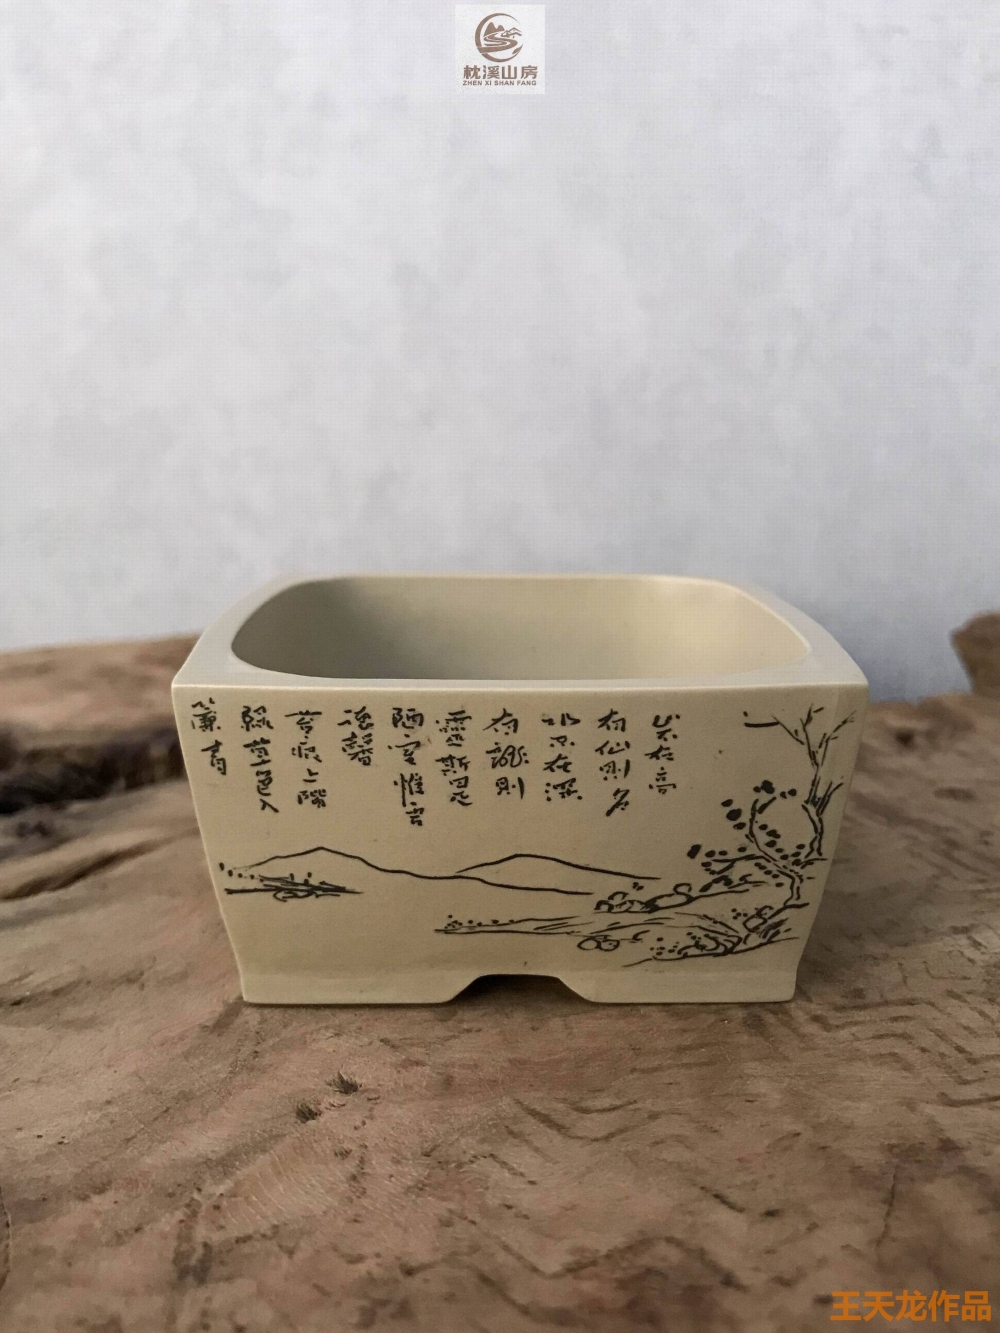 枕溪山房
ZHEN XI SHAN FANG
在高
有仙則名
水不在深
有龍則
靈斯是
陋室惟吾
德馨
苔痕上階
綠草色入
簾青
王天龙作品